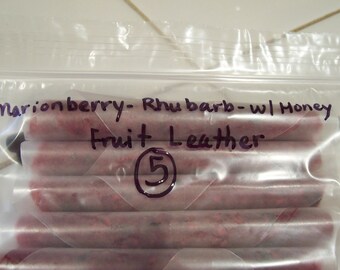 Marionberry - Rhubarb - w/ Honey
Fruit Leather
5